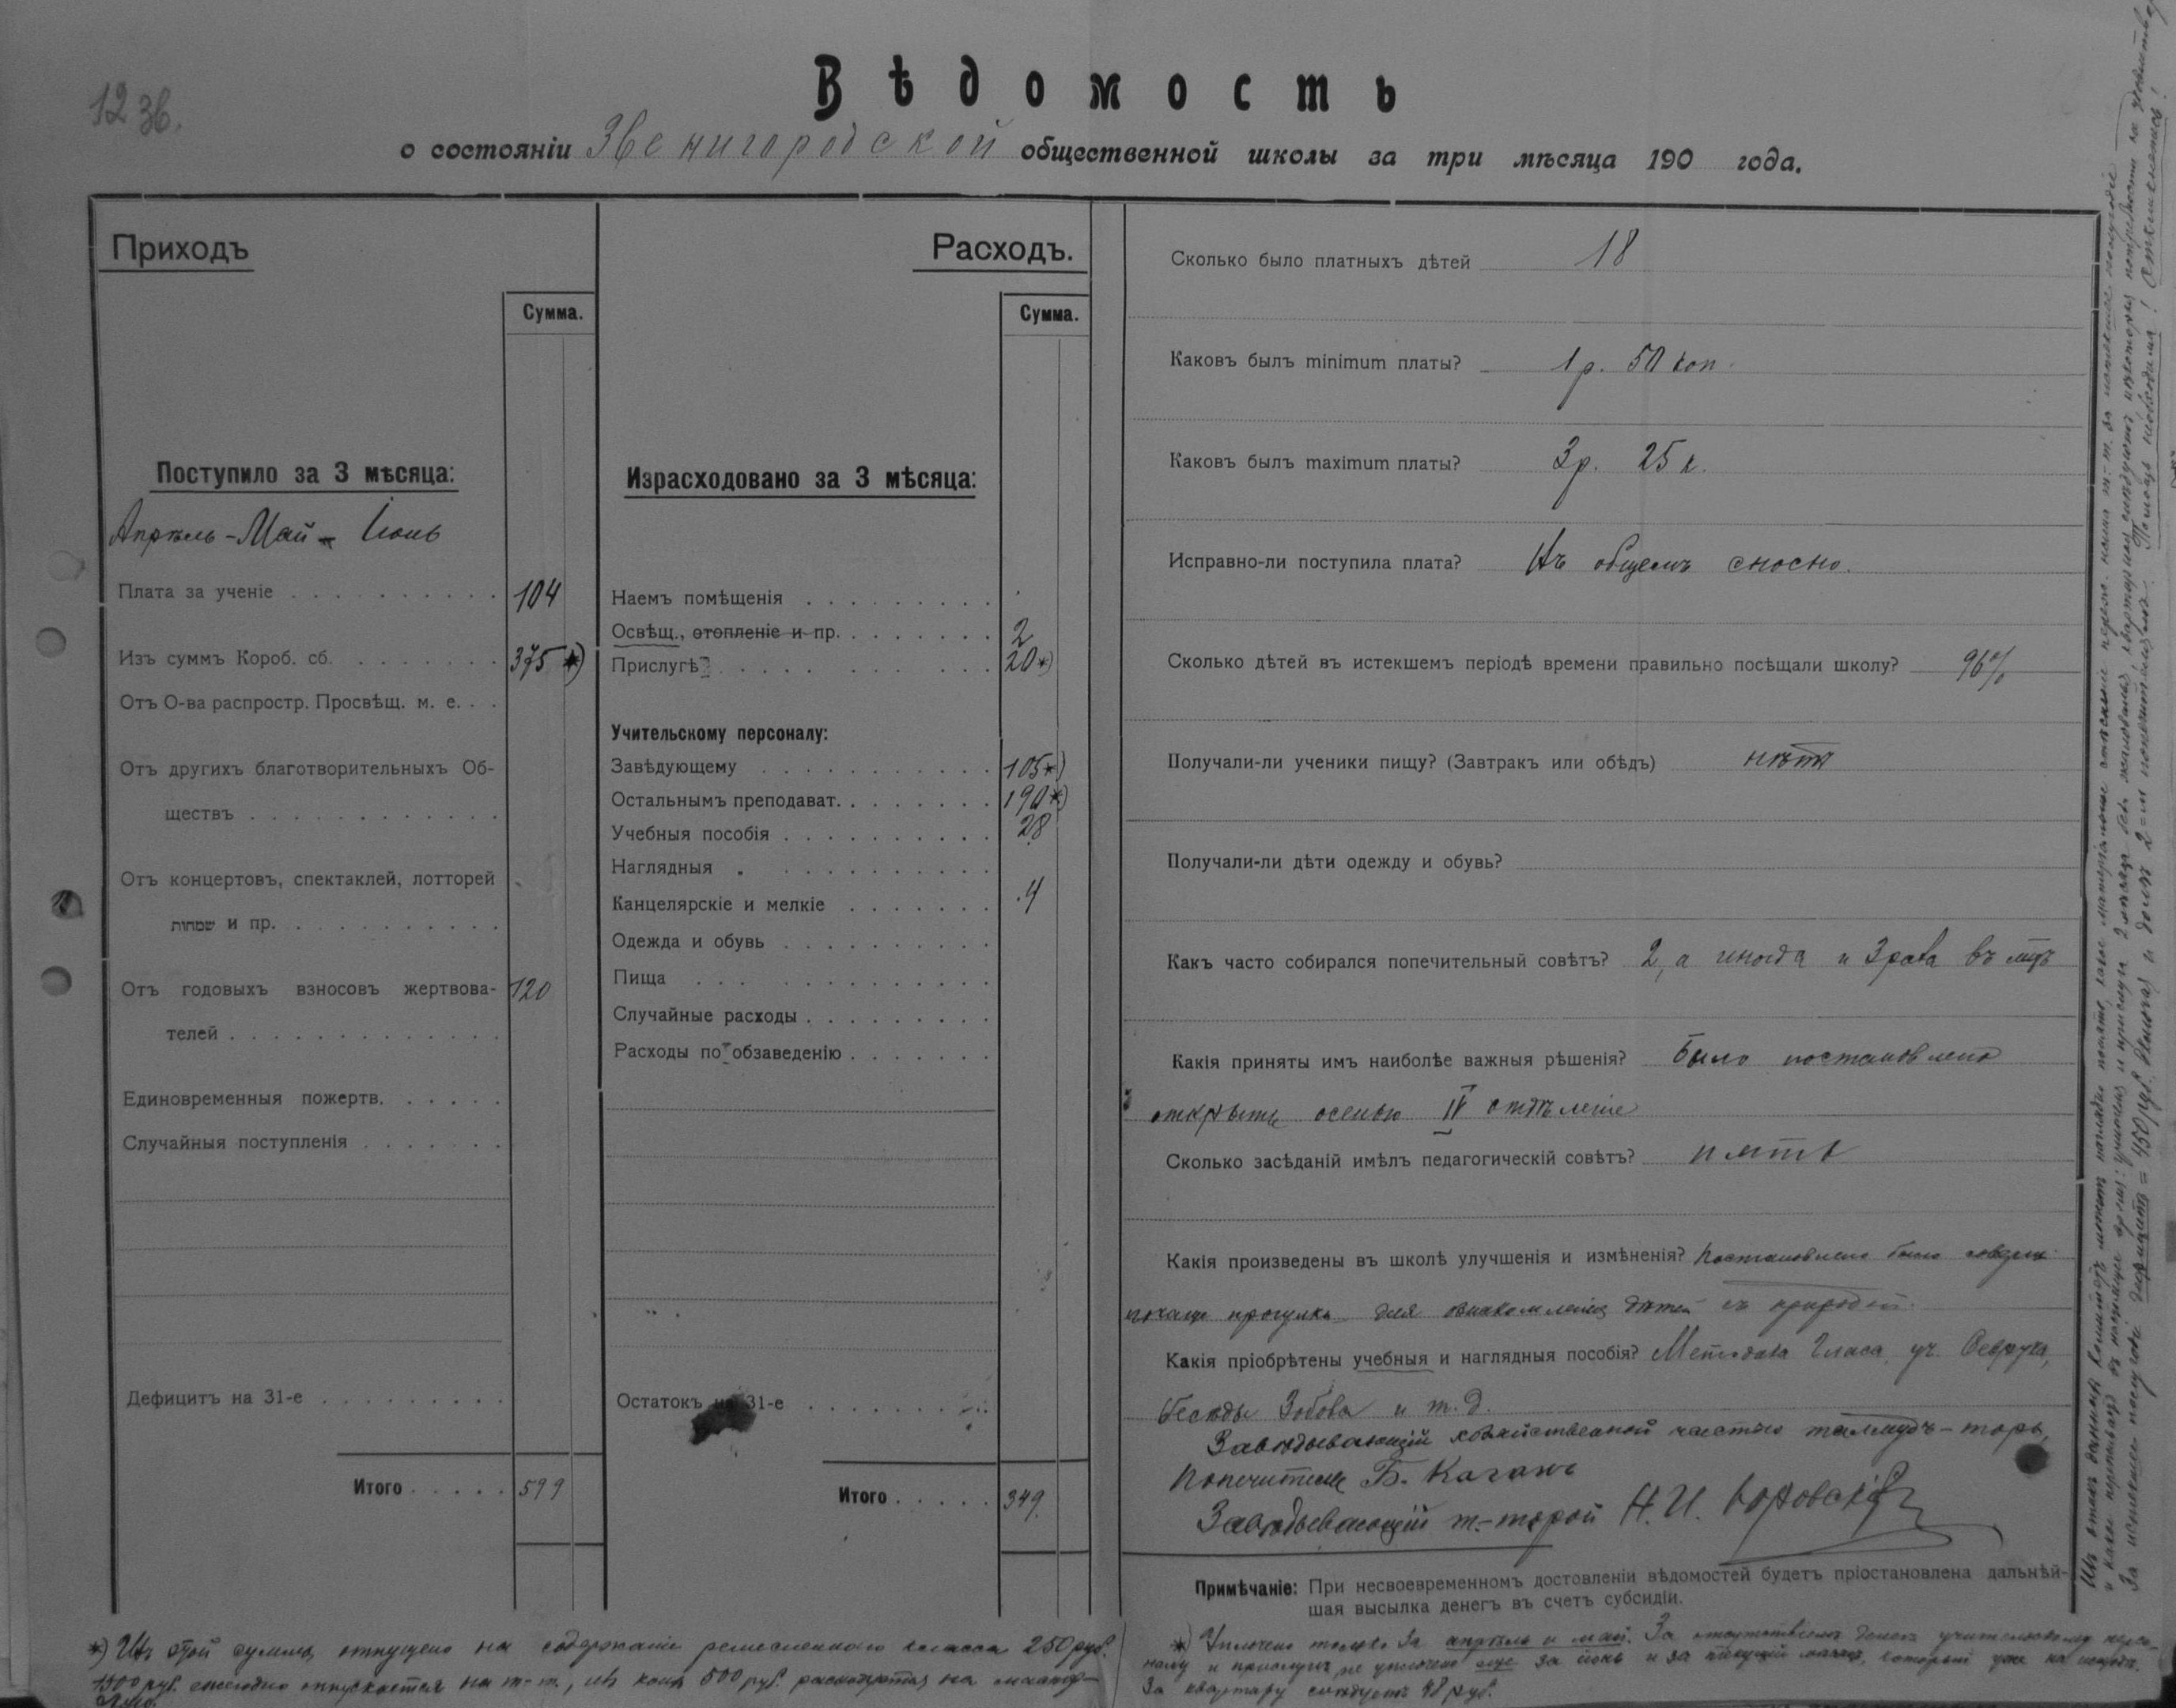 12 зв.
Вѣдомость
о состояніи Звенигородской общественной школы за три мѣсяца 190 года.
Приходъ
Сумма.
Поступило за 3 мѣсяца:
Апрѣль - Май - Іюнь
Плата за ученіе . . . . . . . . . . 104
Изъ суммъ Короб. сб. . . . . . . . 375 *)
Отъ О-ва распростр. Просвѣщ. м. е. . .
Отъ другихъ благотворительныхъ Об-
ществъ . . . . . . . . . . . . .
Отъ концертовъ, спектаклей, лотторей
שמחות и пр. . . . . . . . . . . .
Отъ годовыхъ взносовъ жертвова- 120
телей . . . . . . . . . . . . . .
Единовременныя пожертв. . . . . .
Случайныя поступленія . . . . . . .
Дефицитъ на 31-е . . . . . . . . .
Итого . . . . . 599
Расходъ.
Сумма.
Израсходовано за 3 мѣсяца:
Наемъ помѣщенія . . . . . . . . .
Освѣщ., отопленіе и пр. . . . . . . . 2
Прислугѣ . . . . . . . . 20 *)
Учительскому персоналу:
Завѣдующему . . . . . . . . . . . 105 *)
Остальнымъ преподават. . . . . . . . 190 *)
Учебныя пособія . . . . . . . . . . 28
Наглядныя „ . . . . . . . . . .
Канцелярскіе и мелкіе . . . . . . . 4
Одежда и обувь . . . . . . . . . .
Пища . . . . . . . . . . . . . .
Случайные расходы . . . . . . . . .
Расходы по обзаведенію . . . . . . .
Остатокъ на 31-е . . . . . . . . .
Итого . . . . . 349.
Сколько было платныхъ дѣтей 18
Каковъ былъ minimum платы? 1 р. 50 коп.
Каковъ былъ maximum платы? 3 р. 25 к.
Исправно-ли поступила плата? Въ общемъ сносно.
Сколько дѣтей въ истекшемъ періодѣ времени правильно посѣщали школу? 96%
Получали-ли ученики пищу? (Завтракъ или обѣдъ) нѣтъ
Получали-ли дѣти одежду и обувь?
Какъ часто собирался попечительный совѣтъ? 2, а иногда и 3 раза въ мць
Какія приняты имъ наиболѣе важныя рѣшенія? Было постановлено
открыть осенью IV отдѣленіе
Сколько засѣданій имѣлъ педагогическій совѣтъ? пять
Какія произведены въ школѣ улучшенія и измѣненія? Постановлено было
почаще прогулки для ознакомленія дѣтей съ природой.
Какія пріобрѣтены учебныя и наглядныя пособія? Методика уч.
бесѣды Зобова и т. д.
Завѣдывающій хозяйственной частью талмудъ-торы,
Попечитель Б. Каганъ
Завѣдывающій т.-торой Н. И.
Примѣчаніе: При несвоевременномъ достовленіи вѣдомостей будетъ пріостановлена дальнѣй-
шая высылка денегъ въ счетъ субсидіи.
*) Изъ этой суммы отпущено на содержаніе ремесленнаго класса 250 руб.
1500 руб. ежегодно отпускается на т.-т., изъ коихъ 500 руб. расходуются на
*) Уплочено только за апрѣль и май. За отсутствіемъ денегъ учительскому персо-
налу и прислугѣ не уплочено еще за іюнь и за текущій мѣсяцъ, который уже на исходѣ.
За квартиру слѣдуетъ 48 руб.
Изъ этихъ данныхъ Комитетъ можетъ наглядно понять, какое матеріальное
и какое въ настоящее время: учителя и прислуга 2 мѣсяца безъ жалованья,
За истекшее полугодіе дефицитъ = 450 руб. Помощь необходима!